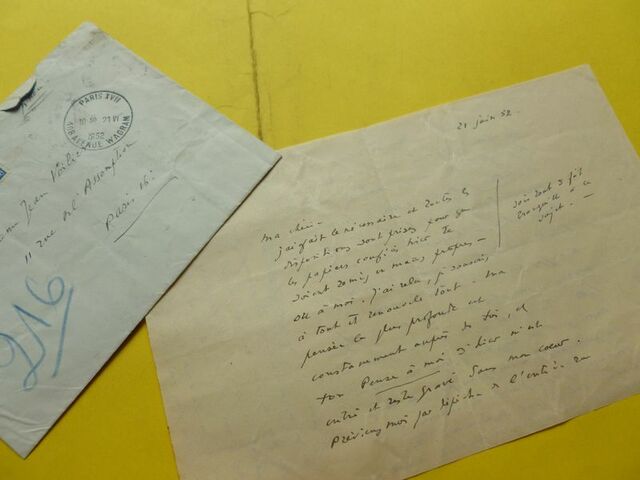 PARIS XVII
10 30 21 VI
1952
108 AVENUE WAGRAM
Jean Voilier
11 rue de l'Assomption
Paris 16e
216
21 juin 52.
ma chérie
j'ai fait le nécessaire et toutes les
dispositions sont prises pour que
les papiers confiés hier te
soient remis en mains propres —
ou à moi. J'ai relu,
à tout et renouvelle tout. Ma
pensée la plus profonde est
constamment auprès de toi, et
ton Pense à moi d'hier m'est
entré et reste gravé dans mon coeur.
Préviens moi par dépêche de l'entrée en
sois tout à fait
tranquille à ce
sujet. —